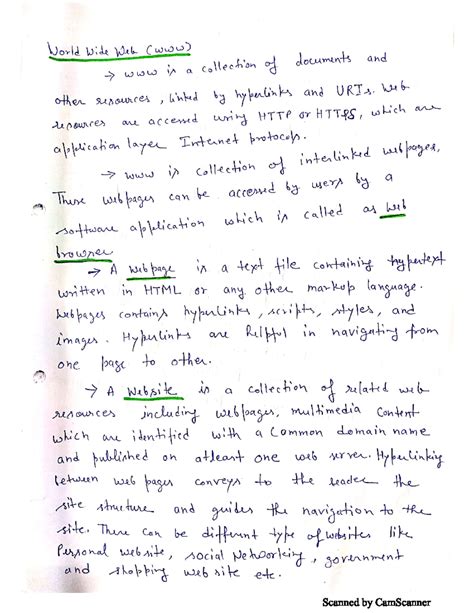 World Wide Web (WWW)
→ WWW is a collection of documents and
other resources, linked by hyperlinks and URIs. Web
resources are accessed using HTTP or HTTPS, which are
application layer Internet protocols.
→ WWW is collection of interlinked webpages,
These webpages can be accessed by users by a
software application which is called as Web
browser
→ A Webpage is a text file containing hypertext
written in HTML or any other markup language.
Webpages contains hyperlinks, scripts, styles, and
images. Hyperlinks are helpful in navigating from
one page to other.
→ A Website is a collection of related web
resources including webpages, multimedia content
which are identified with a common domain name
and published on atleast one web server. Hyperlinking
between web pages conveys to the reader the
site structure and guides the navigation to the
site. There can be different type of websites like
Personal website, social Networking, government
and shopping web site etc.
Scanned by CamScanner